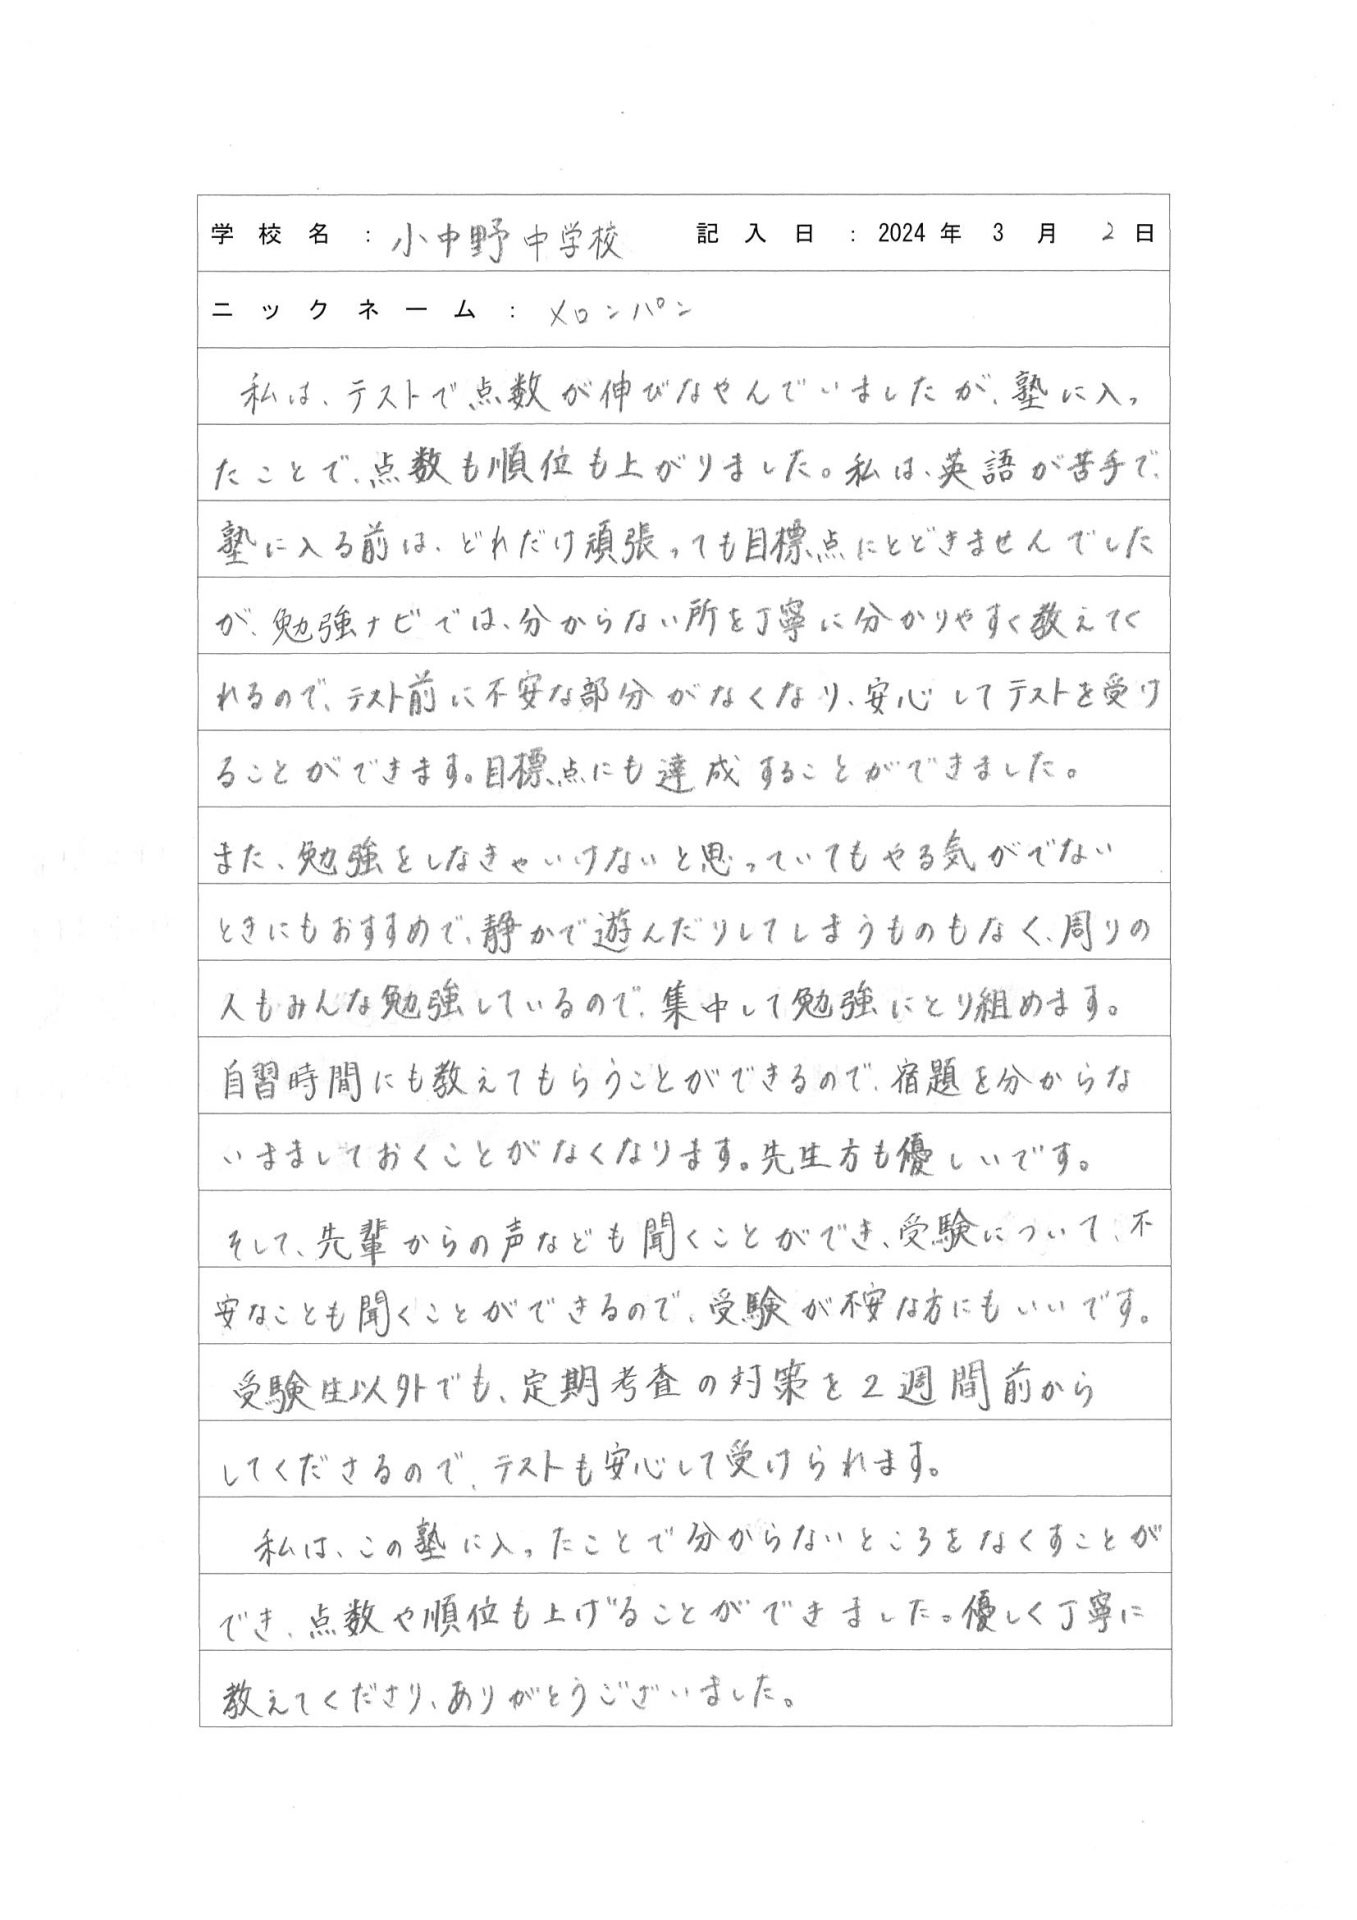 学校名：小中野中学校 記入日：2024年3月2日
ニックネーム：メロンパン
私は、テストで点数が伸びなやんでいましたが、塾に入っ
たことで、点数も順位も上がりました。私は、英語が苦手で、
塾に入る前は、どれだけ頑張っても目標点にとどきませんでした
が、勉強ナビでは、分からない所を丁寧に分かりやすく教えてく
れるので、テスト前に不安な部分がなくなり、安心してテストを受け
ることができます。目標点にも達成することができました。
また、勉強をしなきゃいけないと思っていてもやる気がでない
ときにもおすすめで、静かで遊んだりしてしまうものもなく、周りの
人もみんな勉強しているので、集中して勉強にとり組めます。
自習時間にも教えてもらうことができるので、宿題を分からな
いまましておくことがなくなります。先生方も優しいです。
そして、先輩からの声なども聞くことができ、受験について、不
安なことも聞くことができるので、受験が不安な方にもいいです。
受験生以外でも、定期考査の対策を2週間前から
してくださるので、テストも安心して受けられます。
私は、この塾に入ったことで分からないところをなくすことが
でき、点数や順位も上げることができました。優しく丁寧に
教えてくださり、ありがとうございました。